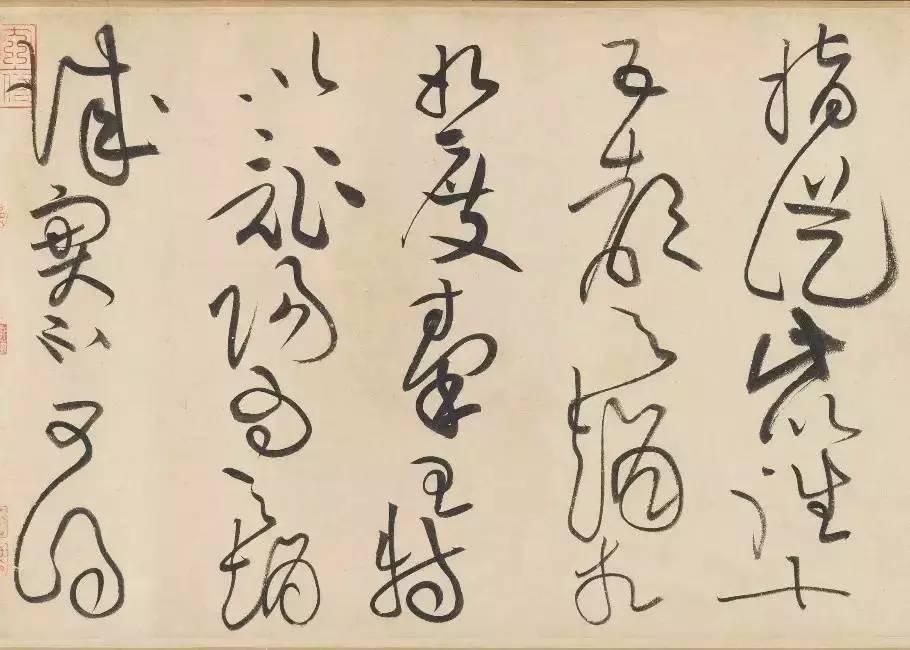 指從此以往十
五都予趙相
如度秦王特
以詐陽為予趙
城實不可得